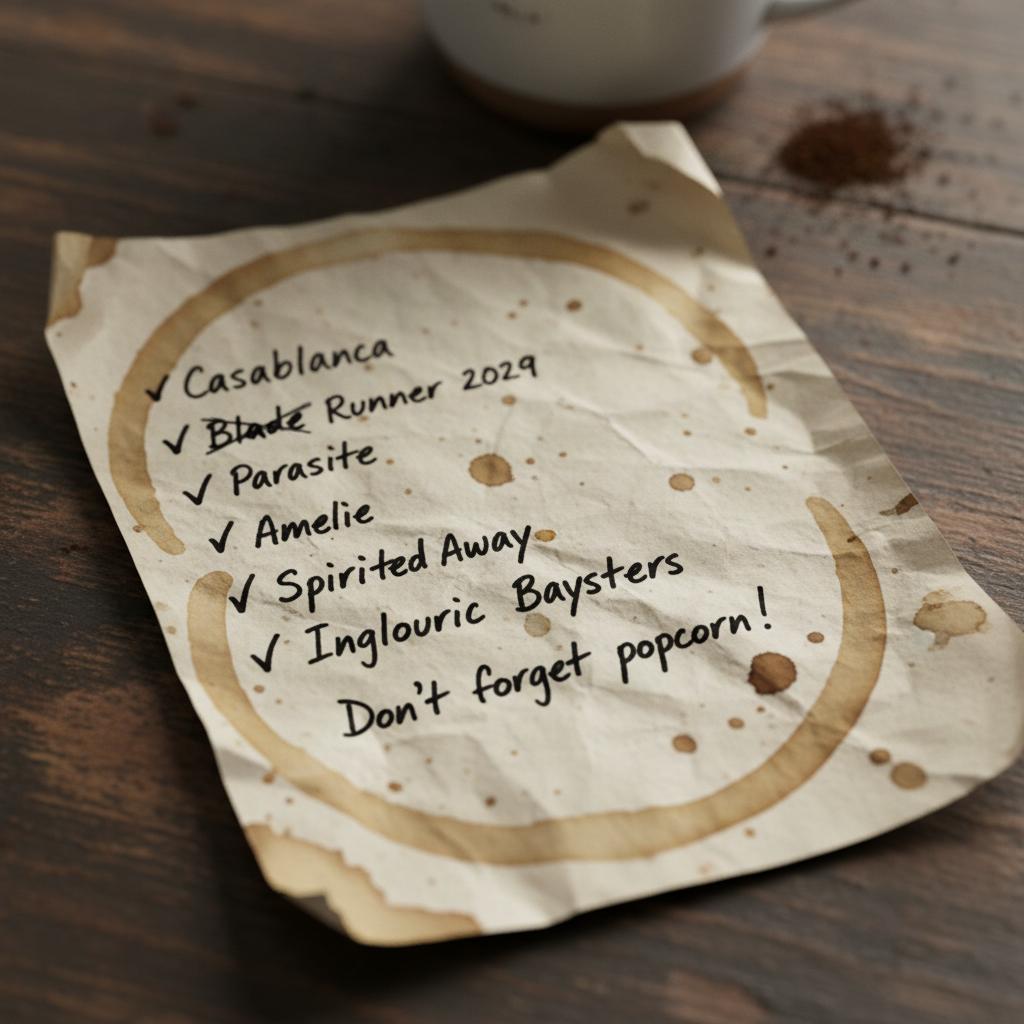 ✓ Casablanca
✓ Blade Runner 2029
✓ Parasite
✓ Amelie
✓ Spirited Away
✓ Inglouric Baysters
Don't forget popcorn!